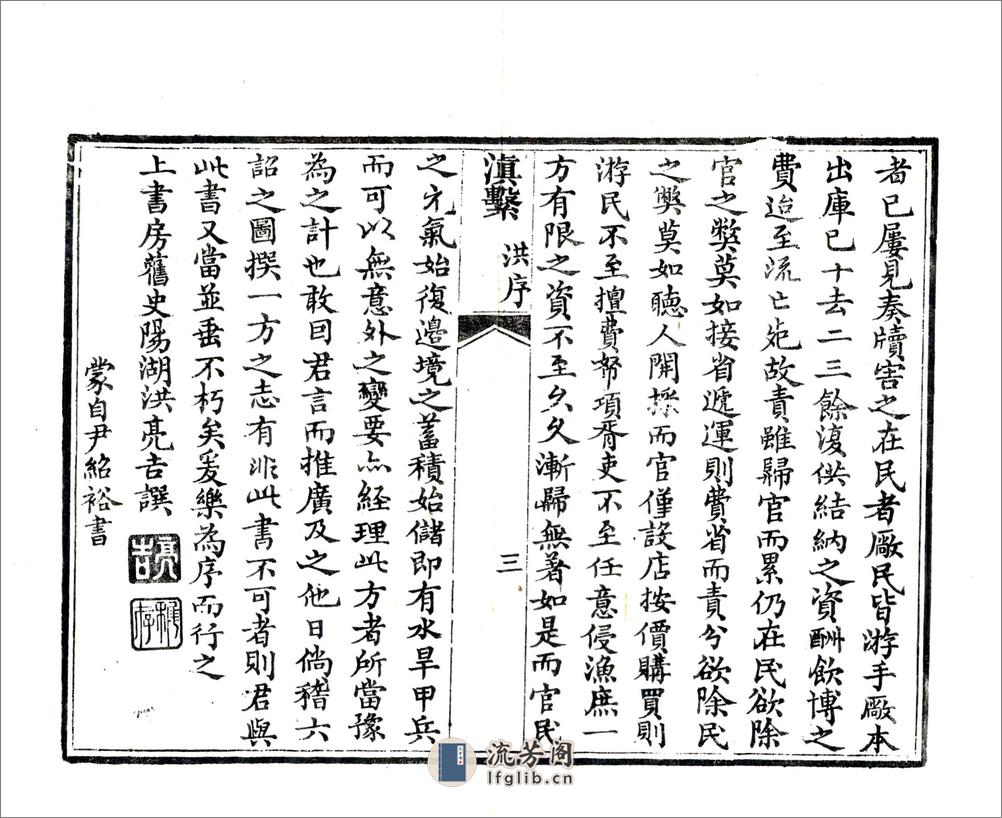 者已屢見奏牘害之在民者廠民皆游手廠本
出庫已十去二三餘復供結納之資酬飲博之
費迨至流亡死故責雖歸官而累仍在民欲除
官之獘莫如接省遞運則費省而責分欲除民
之獘莫如聽人開採而官僅設店按價購買則
游民不至擅費帑項胥吏不至任意侵漁庶一
方有限之資不至久久漸歸無著如是而官民
滇繫
洪序
三
之元氣始復邊境之蓄積始儲即有水旱甲兵
而可以無意外之變要亦經理此方者所當豫
為之計也敢因君言而推廣及之他日倘稽六
詔之圖撰一方之志有非此書不可者則君與
此書又當並垂不朽矣爰樂為序而行之
上書房舊史陽湖洪亮吉譔
亮吉
稚存
蒙自尹紹裕書
流芳阁
lfglib.cn